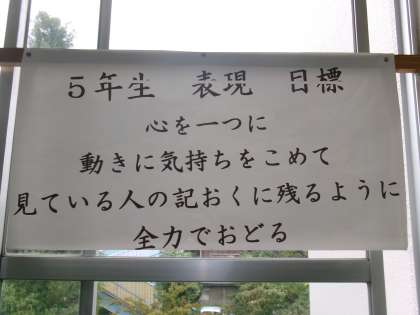 ５年生　表現　目標
心を一つに
動きに気持ちをこめて
見ている人の記おくに残るように
全力でおどる